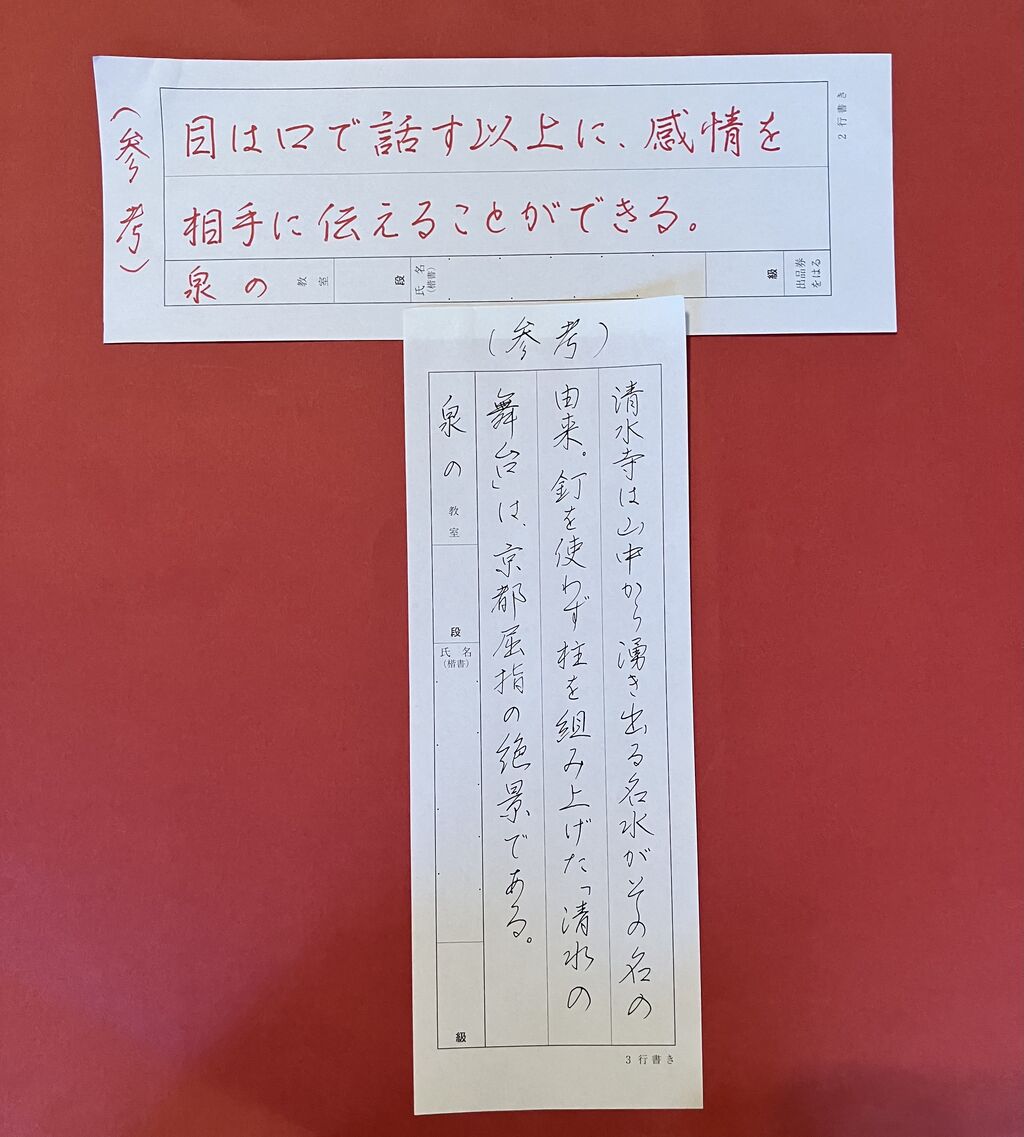 (参考)
目は口で話す以上に、感情を
相手に伝えることができる。
泉の 教室 段 氏名(楷書) 級 出品券をはる
2行書き
(参考)
清水寺は山中から湧き出る名水がその名の
由来。釘を使わず柱を組み上げた「清水の
舞台」は、京都屈指の絶景である。
泉の 教室 段 氏名(楷書) 級
3行書き